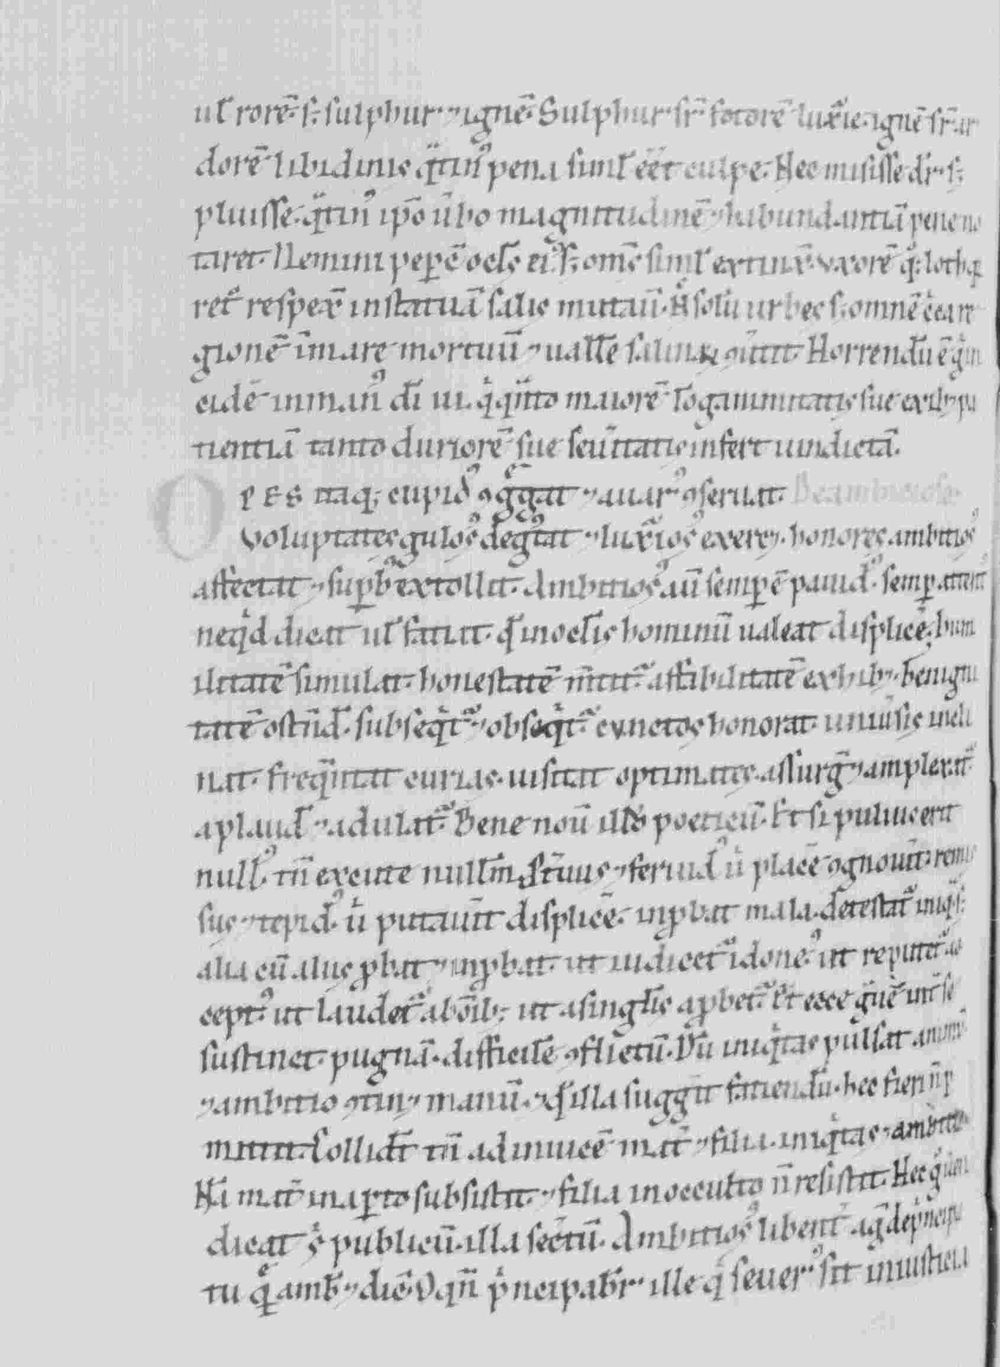 ul̃ rorē· s; sulphur· ⁊ ignē· Sulphur· sr̄ fotorē luxͥie· ignē sr̄ ar
dorē libidinis q̈tin᷒ pena simil̃ eēt culpe· Hec misisse dr̄· s;
pluisse· q̈tin᷒ ip̄o ủbo magnitudinē ⁊ habundantiā pene no
taret· Nemini peꝑcē ocl̃s ei᷒· S; om̄s simil̃ extinx̄· vxorē q̨; loth q̨
ret᷒ respex̄ in statuā salis mutauͥ· Ñ solū urbes s; omnē cͥca re
gionē in mare mortuū ⁊ uallē salinaꝝ ꝯũtit· Horrendū ē gͥ in
cidē in man᷒ dī uiu· qͥ q̈nto maiorē l̃oganimitatis sue exibꝫ pa
tientiā tanto duriorē sue seũitatis infert uindictā·
OPES itaq; cupid᷒ ꝯg̃gat ⁊ auar᷒ ꝯseruat· De ambitioso
voluptates gulos᷒ degͧtat ⁊ luxͥios᷒ exercꝫ· honores ambitios᷒
affectat ⁊ suꝑb᷒ extollit· Ambitios᷒ aū semꝑ ē pauid᷒· semꝑ attent᷒
neqͥd dicat ul̃ faciat· qd̃ in oclis hominū ualeat displicē; hum
ilitatē simulat· honestatē m̄tit᷑ affibilitatē exhibꝫ· benigni
tatē ostñd̃· subseqͥt᷑ ⁊ obseqͥt᷑ cunctos honorat· uniuͥsis incli
nat· freq̃ntat curias· uisitat optimates· assurg̃ ⁊ amplexat᷑
aplaud̃ ⁊ adulat᷑ Bene nouͥ illud poeticū· Et si puluͥs erit
null᷒ tñ excute nullm̄ Prũus ⁊ feruid᷒ uͥ placē ꝯgnouͥit· remis
sus ⁊ tepid᷒ uͥ putauͥit displicē· inꝓbat mala· detestat᷑ iniqͥ· s;
alia cū aliis ꝓbat ⁊ inꝓbat· ut iudicet᷑ idone᷒ ut reputet᷑ ac
cept᷒ ut laudet᷑ ab oīb; ut a singlis aꝓbet᷑ Et ecce g̃uē int̃ se
sustinet pugnā· difficilē ꝯflictū· Dū iniqͥtas pulsat animū
⁊ ambitio ꝯtinꝫ manū· ⁊ qd̃ illa sugg̃it faciendū· hec fieri ñ ꝑ
mittit· Collidt̃ tñ ad inuicē mat̃ ⁊ filia· iniqͥtas ⁊ ambitio·
Nā mat̃ in aꝑto subsistit· ⁊ filia in occulto ñ resistit· Hec g̃
dicat sͥ publicū· illa sec̃tū· Ambitios᷒ libent̃ ag̃ de pͥncipa
tu qͤ amb̃ ⁊ dic̃· O qñ pͥncipabr̄ ille qͥ seuer᷒ sit in iusticia